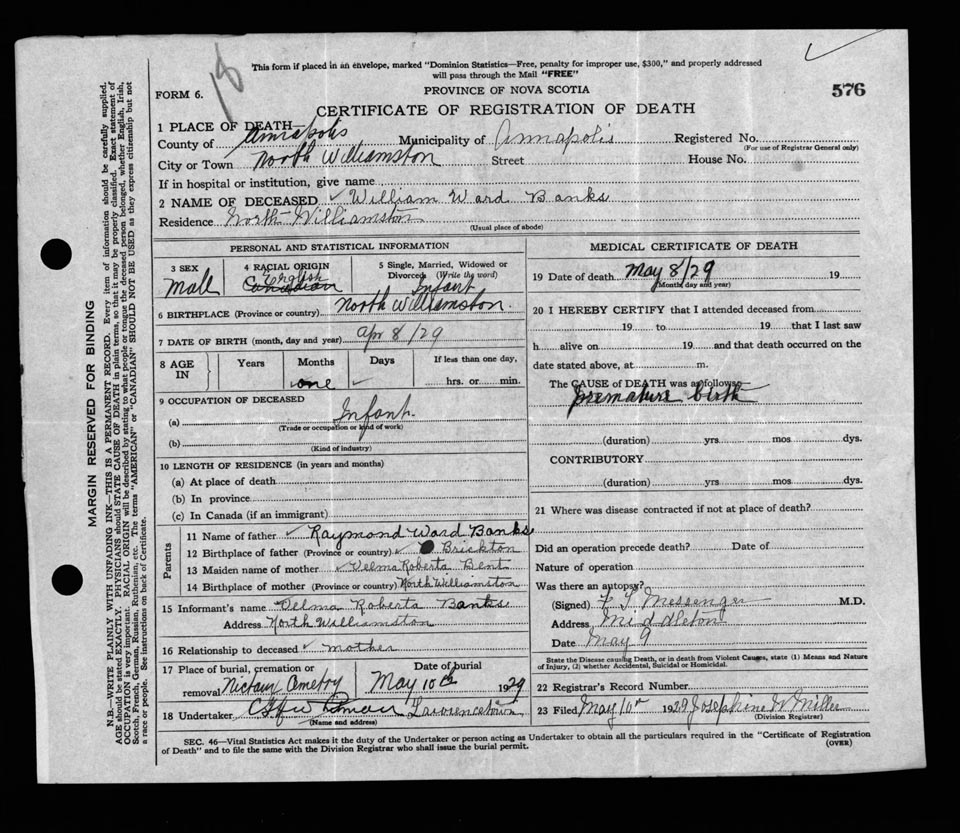 18
This form if placed in an envelope, marked "Dominion Statistics—Free, penalty for improper use, $300," and properly addressed
will pass through the Mail "FREE"
FORM 6.
PROVINCE OF NOVA SCOTIA
576
CERTIFICATE OF REGISTRATION OF DEATH
1 PLACE OF DEATH—
County of Annapolis Municipality of Annapolis Registered No.
(For use of Registrar General only)
City or Town North Williamston Street House No.
If in hospital or institution, give name
2 NAME OF DECEASED William Ward Banks
Residence North Williamston
(Usual place of abode)
PERSONAL AND STATISTICAL INFORMATION
3 SEX
Male
4 RACIAL ORIGIN
English
Canadian
5 Single, Married, Widowed or
Divorced (Write the word)
Infant
6 BIRTHPLACE (Province or country) North Williamston.
7 DATE OF BIRTH (month, day and year) Apr 8/29
8 AGE IN
Years
Months
one
Days
If less than one day,
hrs. or min.
9 OCCUPATION OF DECEASED
(a) Infant.
(Trade or occupation or kind of work)
(b)
(Kind of industry)
10 LENGTH OF RESIDENCE (in years and months)
(a) At place of death
(b) In province
(c) In Canada (if an immigrant)
Parents
11 Name of father Raymond Ward Banks
12 Birthplace of father (Province or country) Brickton
13 Maiden name of mother Velma Roberta Bent
14 Birthplace of mother (Province or country) North Williamston
15 Informant's name Velma Roberta Banks
Address North Williamston
16 Relationship to deceased mother
17 Place of burial, cremation or
removal Nictaux
Date of burial
May 10th 1929
18 Undertaker Lawrencetown
(Name and address)
MEDICAL CERTIFICATE OF DEATH
19 Date of death May 8/29 19
(Month, day and year)
20 I HEREBY CERTIFY that I attended deceased from
19 to 19 that I last saw
h alive on 19 and that death occurred on the
date stated above, at m.
The CAUSE OF DEATH was as follows:
premature birth
(duration) yrs. mos. dys.
CONTRIBUTORY
(duration) yrs. mos. dys.
21 Where was disease contracted if not at place of death?
Did an operation precede death? Date of
Nature of operation
Was there an autopsy?
(Signed) Messenger M.D.
Address Middleton
Date May 9
State the Disease causing Death, or in death from Violent Causes, state (1) Means and Nature
of Injury, (2) whether Accidental, Suicidal or Homicidal.
22 Registrar's Record Number
23 Filed May 10th 1929 Josephine W Miller
(Division Registrar)
SEC. 46—Vital Statistics Act makes it the duty of the Undertaker or person acting as Undertaker to obtain all the particulars required in the "Certificate of Registration
of Death" and to file the same with the Division Registrar who shall issue the burial permit.
(OVER)
MARGIN RESERVED FOR BINDING
N.B.—WRITE PLAINLY WITH UNFADING INK—THIS IS A PERMANENT RECORD. Every item of information should be carefully supplied.
AGE should be stated EXACTLY. PHYSICIANS should STATE CAUSE OF DEATH in plain terms, so that it may be properly classified. Exact statement of
OCCUPATION is very important. RACIAL ORIGIN will be described by stating to what people or tongue the deceased person belonged, whether English, Irish,
Scotch, French, German, Russian, Ruthenian, etc. The terms "AMERICAN" or "CANADIAN" SHOULD NOT BE USED as they express citizenship but not
a race or people. See instructions on back of Certificate.